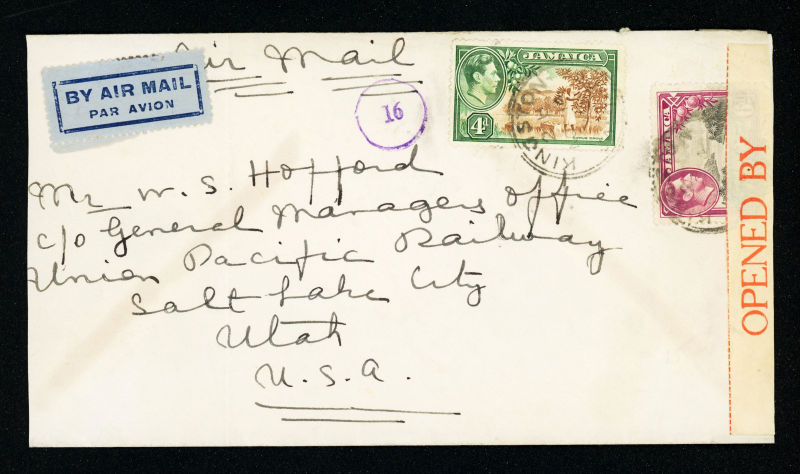 Air Mail
BY AIR MAIL
PAR AVION
16
JAMAICA
4d
CITRUS GROVE
KINGSTON
JAMAICA
OPENED BY
Mr W. S. Hofford
c/o General Managers Office
Union Pacific Railway
Salt Lake City
Utah
U.S.A.